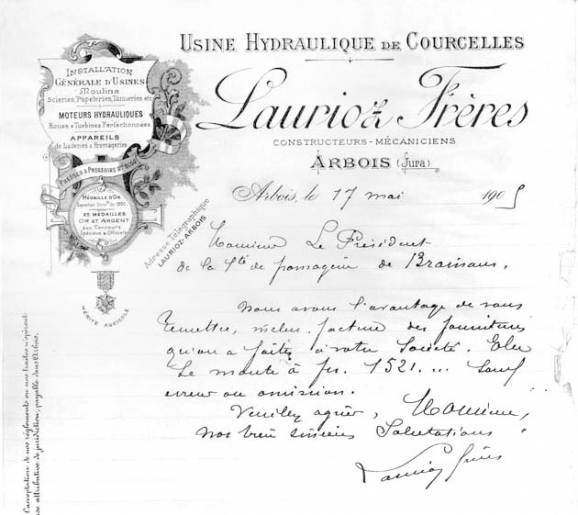 USINE HYDRAULIQUE DE COURCELLES
Laurioz Frères
CONSTRUCTEURS - MÉCANICIENS
ARBOIS (Jura)
INSTALLATION
GÉNÉRALE D'USINES
Moulins
Scieries, Papeteries, Tanneries, etc
MOTEURS HYDRAULIQUES
Roues & Turbines Perfectionnées
APPAREILS
de Laiteries & Fromageries
MÉDAILLE D'OR
25 MÉDAILLES
OR ET ARGENT
aux Concours
MÉRITE AGRICOLE
Adresse Télégraphique
LAURIOZ-ARBOIS
Arbois, le 17 mai 1905
Monsieur Le Président
de la Sté de fromagerie de Brainans,
Nous avons l'avantage de vous
remettre, inclus facture des fournitures
qu'on a faites à votre Société. Elle
Se monte à frs. 1521.... Sauf
erreur ou omission.
Veuillez agréer, Monsieur,
nos bien sincères Salutations
Laurioz frères
L'acceptation de nos règlements ou nos traites n'opèrent
de attribution de juridiction, payable dans Arbois.